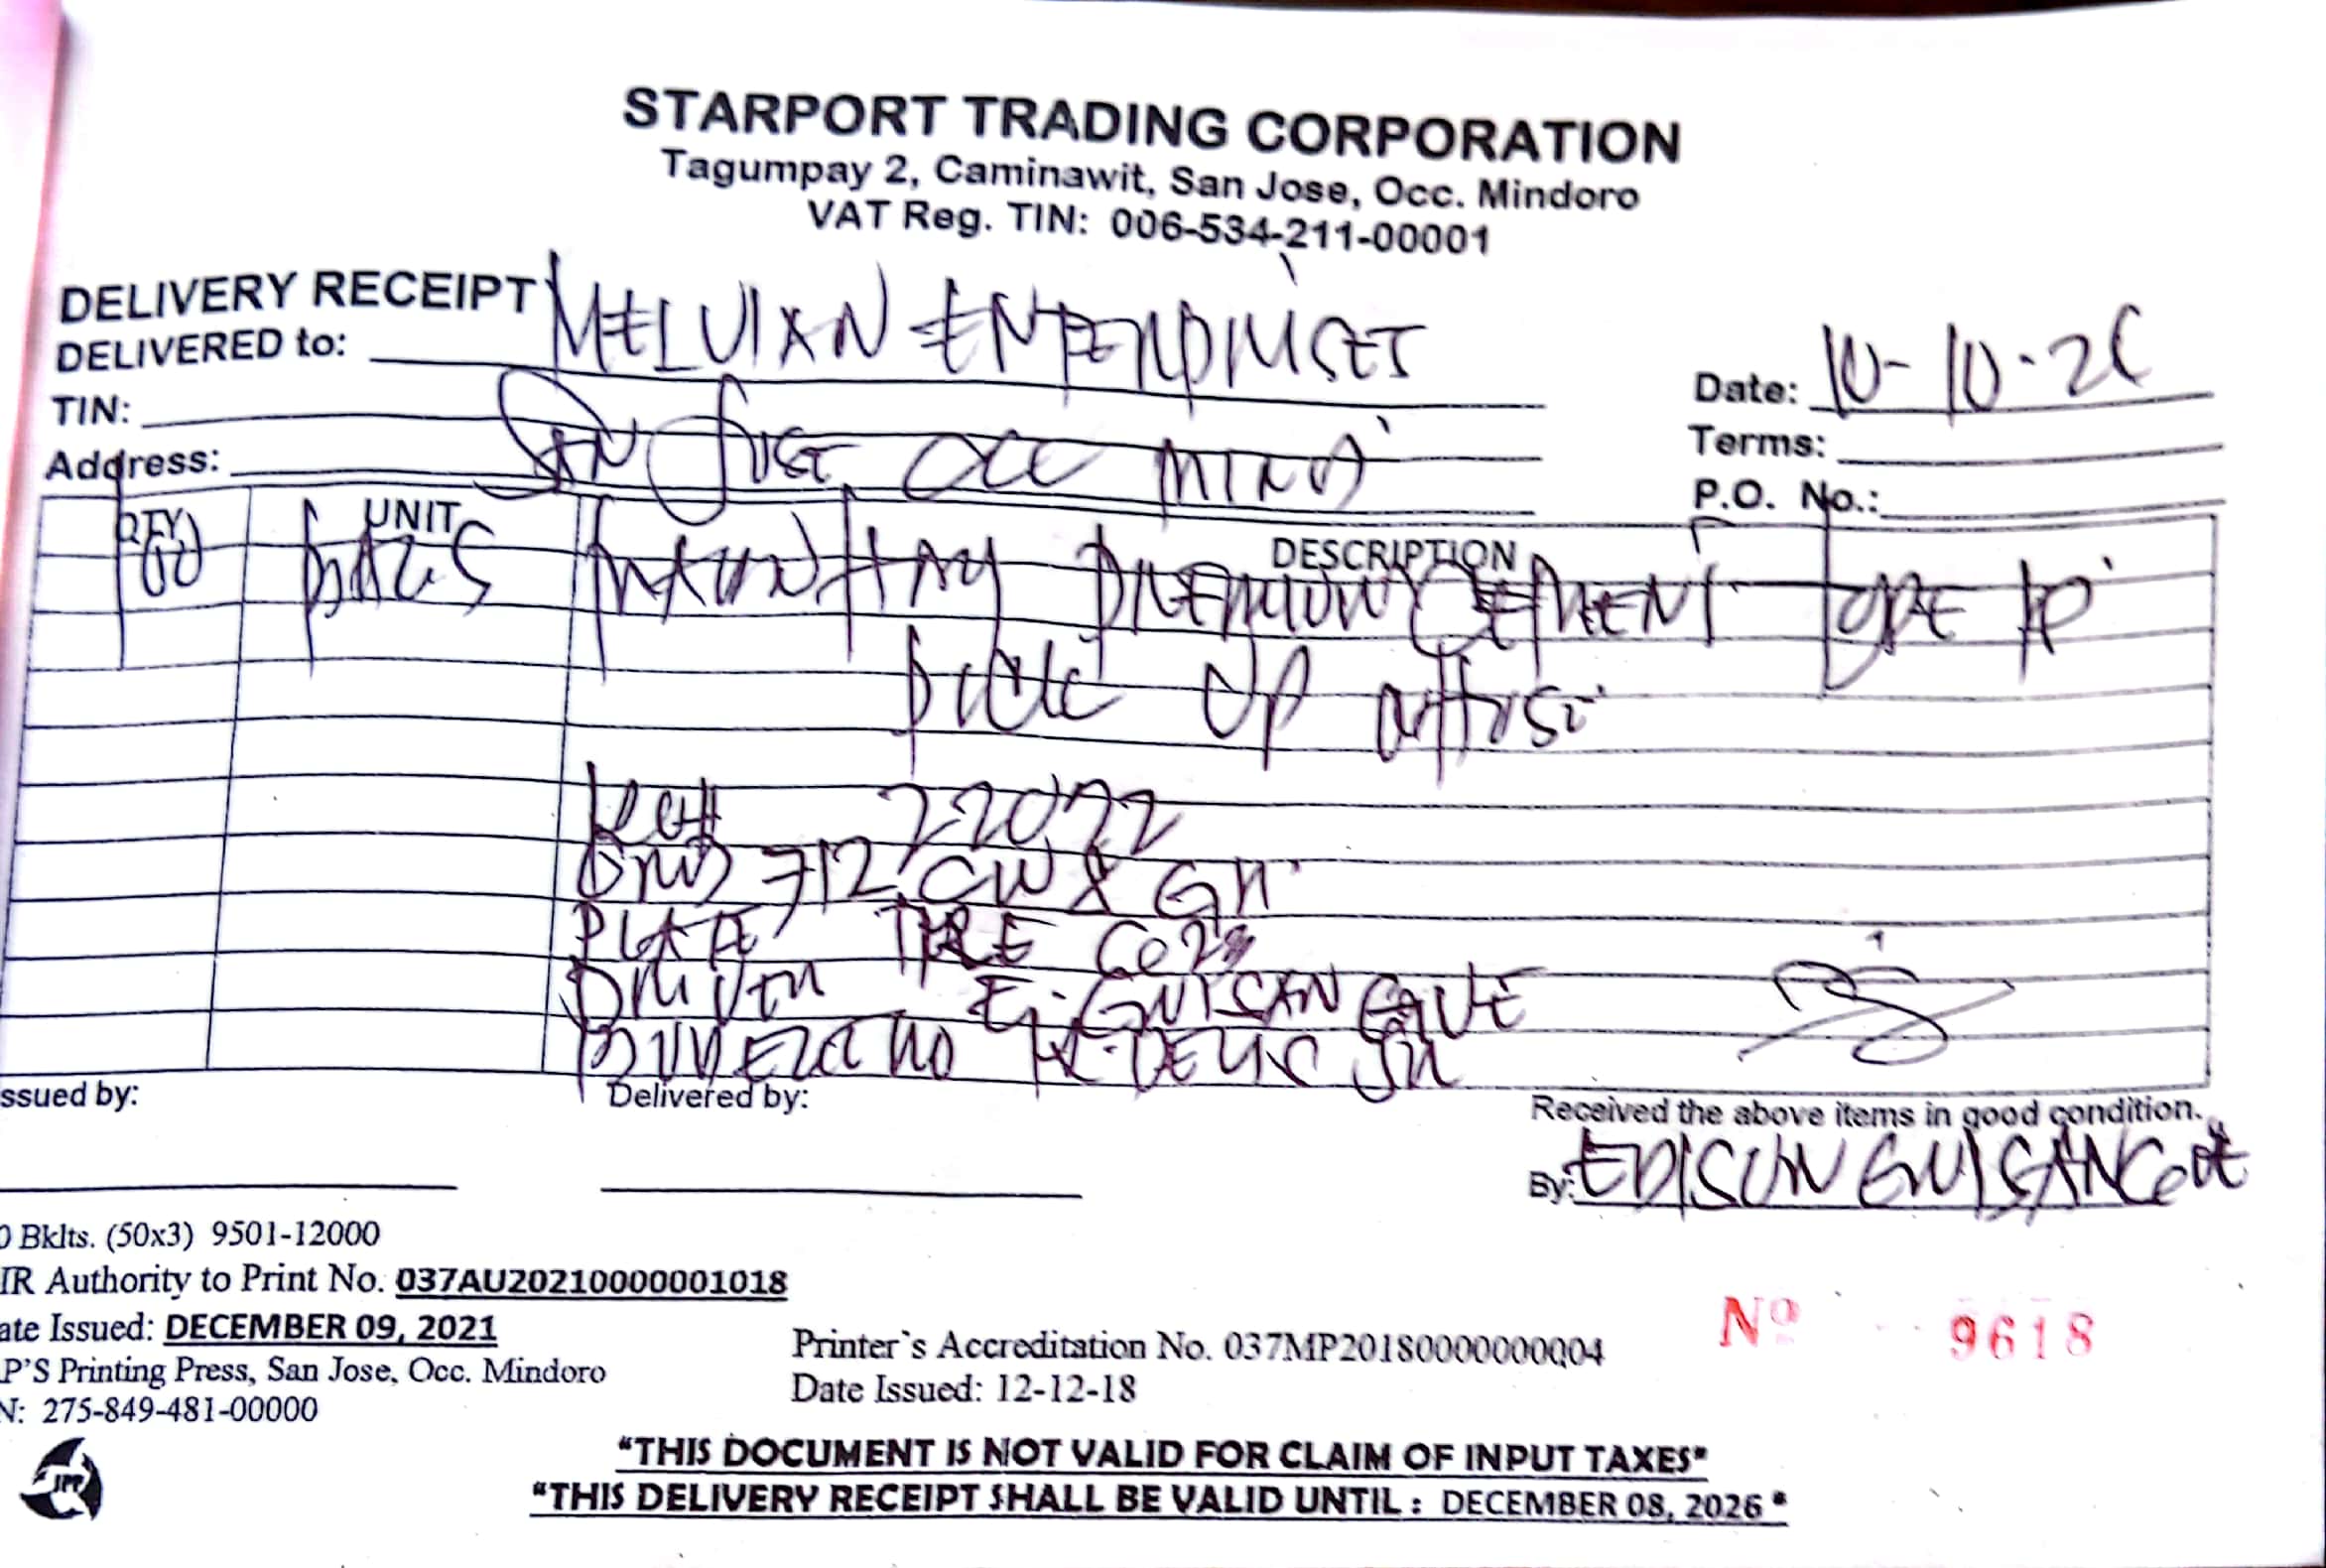 STARPORT TRADING CORPORATION
Tagumpay 2, Caminawit, San Jose, Occ. Mindoro
VAT Reg. TIN: 006-534-211-00001
DELIVERY RECEIPT
DELIVERED to: MELVIAN
Date: 10-10-26
TIN:
Terms:
Address: SAN JOSE OCC MIND
P.O. No.:
QTY UNIT DESCRIPTION
BAGS PREMIUM CEMENT TYPE 1P
PICK UP
22022
712 CW & GH
PLATE
DRIVER E. GUISAN
JR
ssued by:
Delivered by:
Received the above items in good condition.
By: EDISON
0 Bklts. (50x3) 9501-12000
IR Authority to Print No. 037AU20210000001018
ate Issued: DECEMBER 09, 2021
P'S Printing Press, San Jose, Occ. Mindoro
N: 275-849-481-00000
Printer`s Accreditation No. 037MP20180000000004
Date Issued: 12-12-18
Nº 9618
JPP
"THIS DOCUMENT IS NOT VALID FOR CLAIM OF INPUT TAXES"
"THIS DELIVERY RECEIPT SHALL BE VALID UNTIL : DECEMBER 08, 2026 "